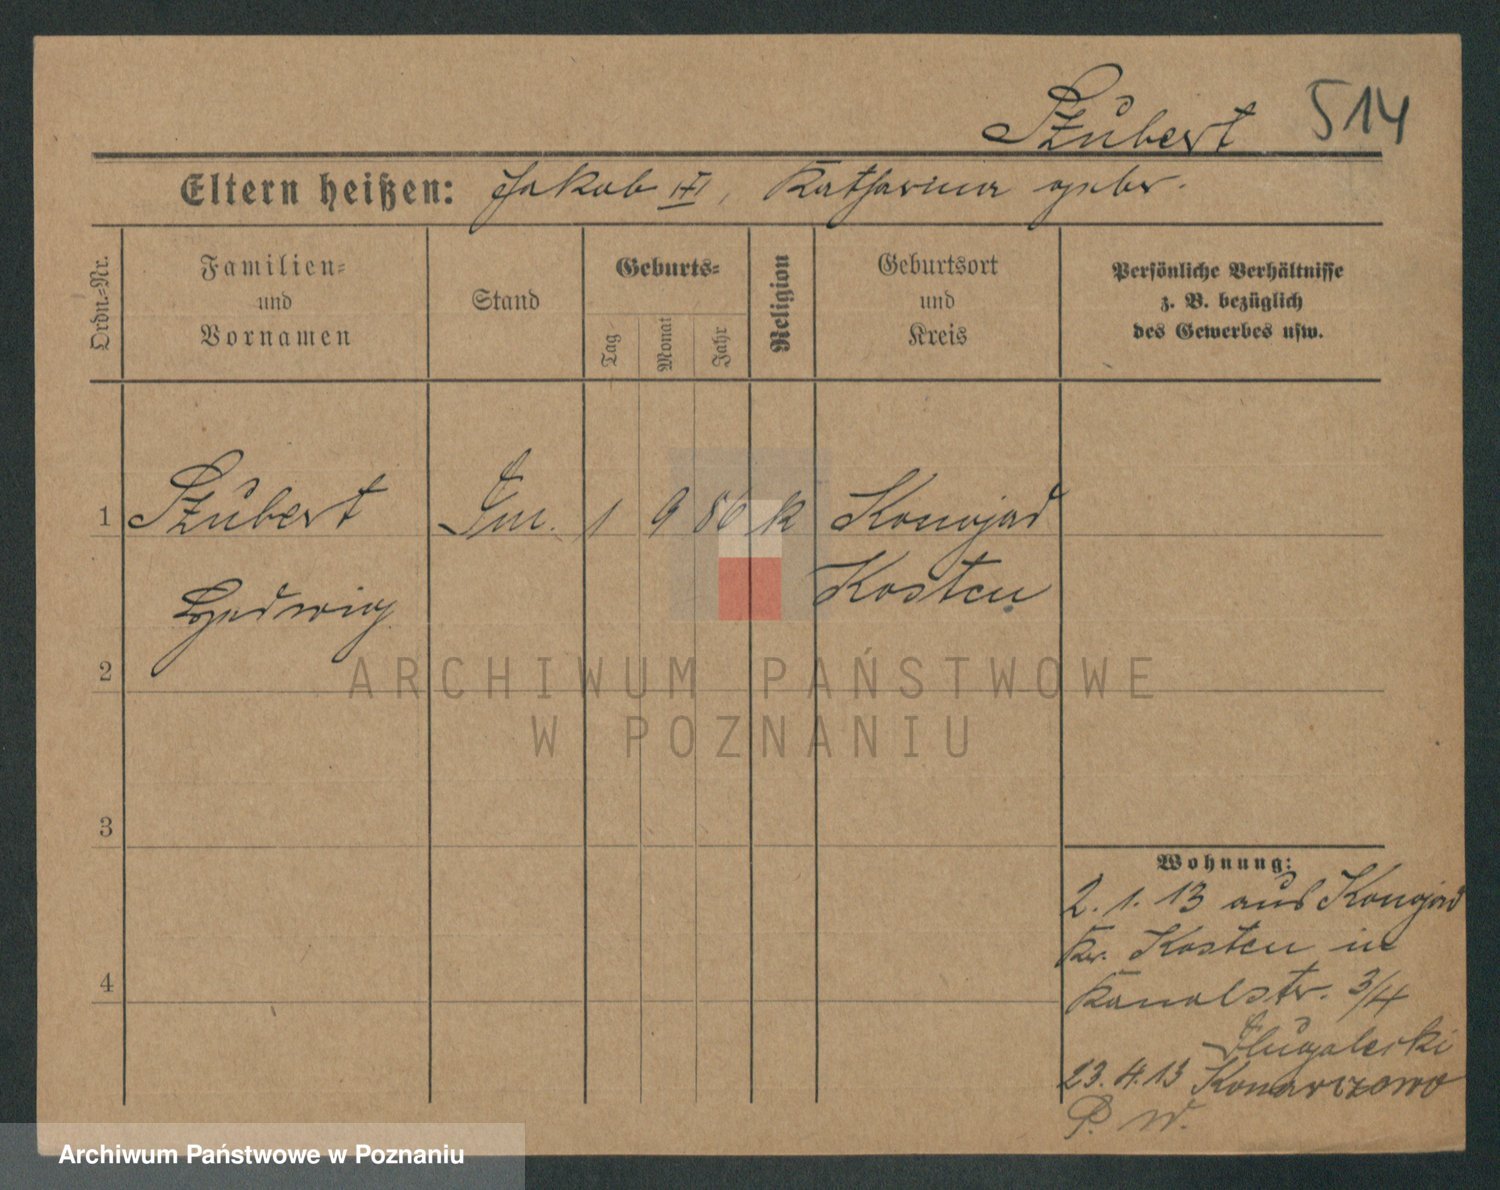 Szubert 514
Eltern heißen: Jakob III, Katharina gebr.
Ordn.-Nr.
Familien-
und
Vornamen
Stand
Geburts-
Tag
Monat
Jahr
Religion
Geburtsort
und
Kreis
Persönliche Verhältnisse
z. B. bezüglich
des Gewerbes usw.
1 Szubert 1 9 86 k Konojad
Kosten
Hedwig
2
3
4
Wohnung:
2. 1. 13 aus Konojad
Kr. Kosten in
Kanalstr. 3/4
23. 4. 13 Konarzewo
P. W.
ARCHIWUM PAŃSTWOWE
W POZNANIU
Archiwum Państwowe w Poznaniu